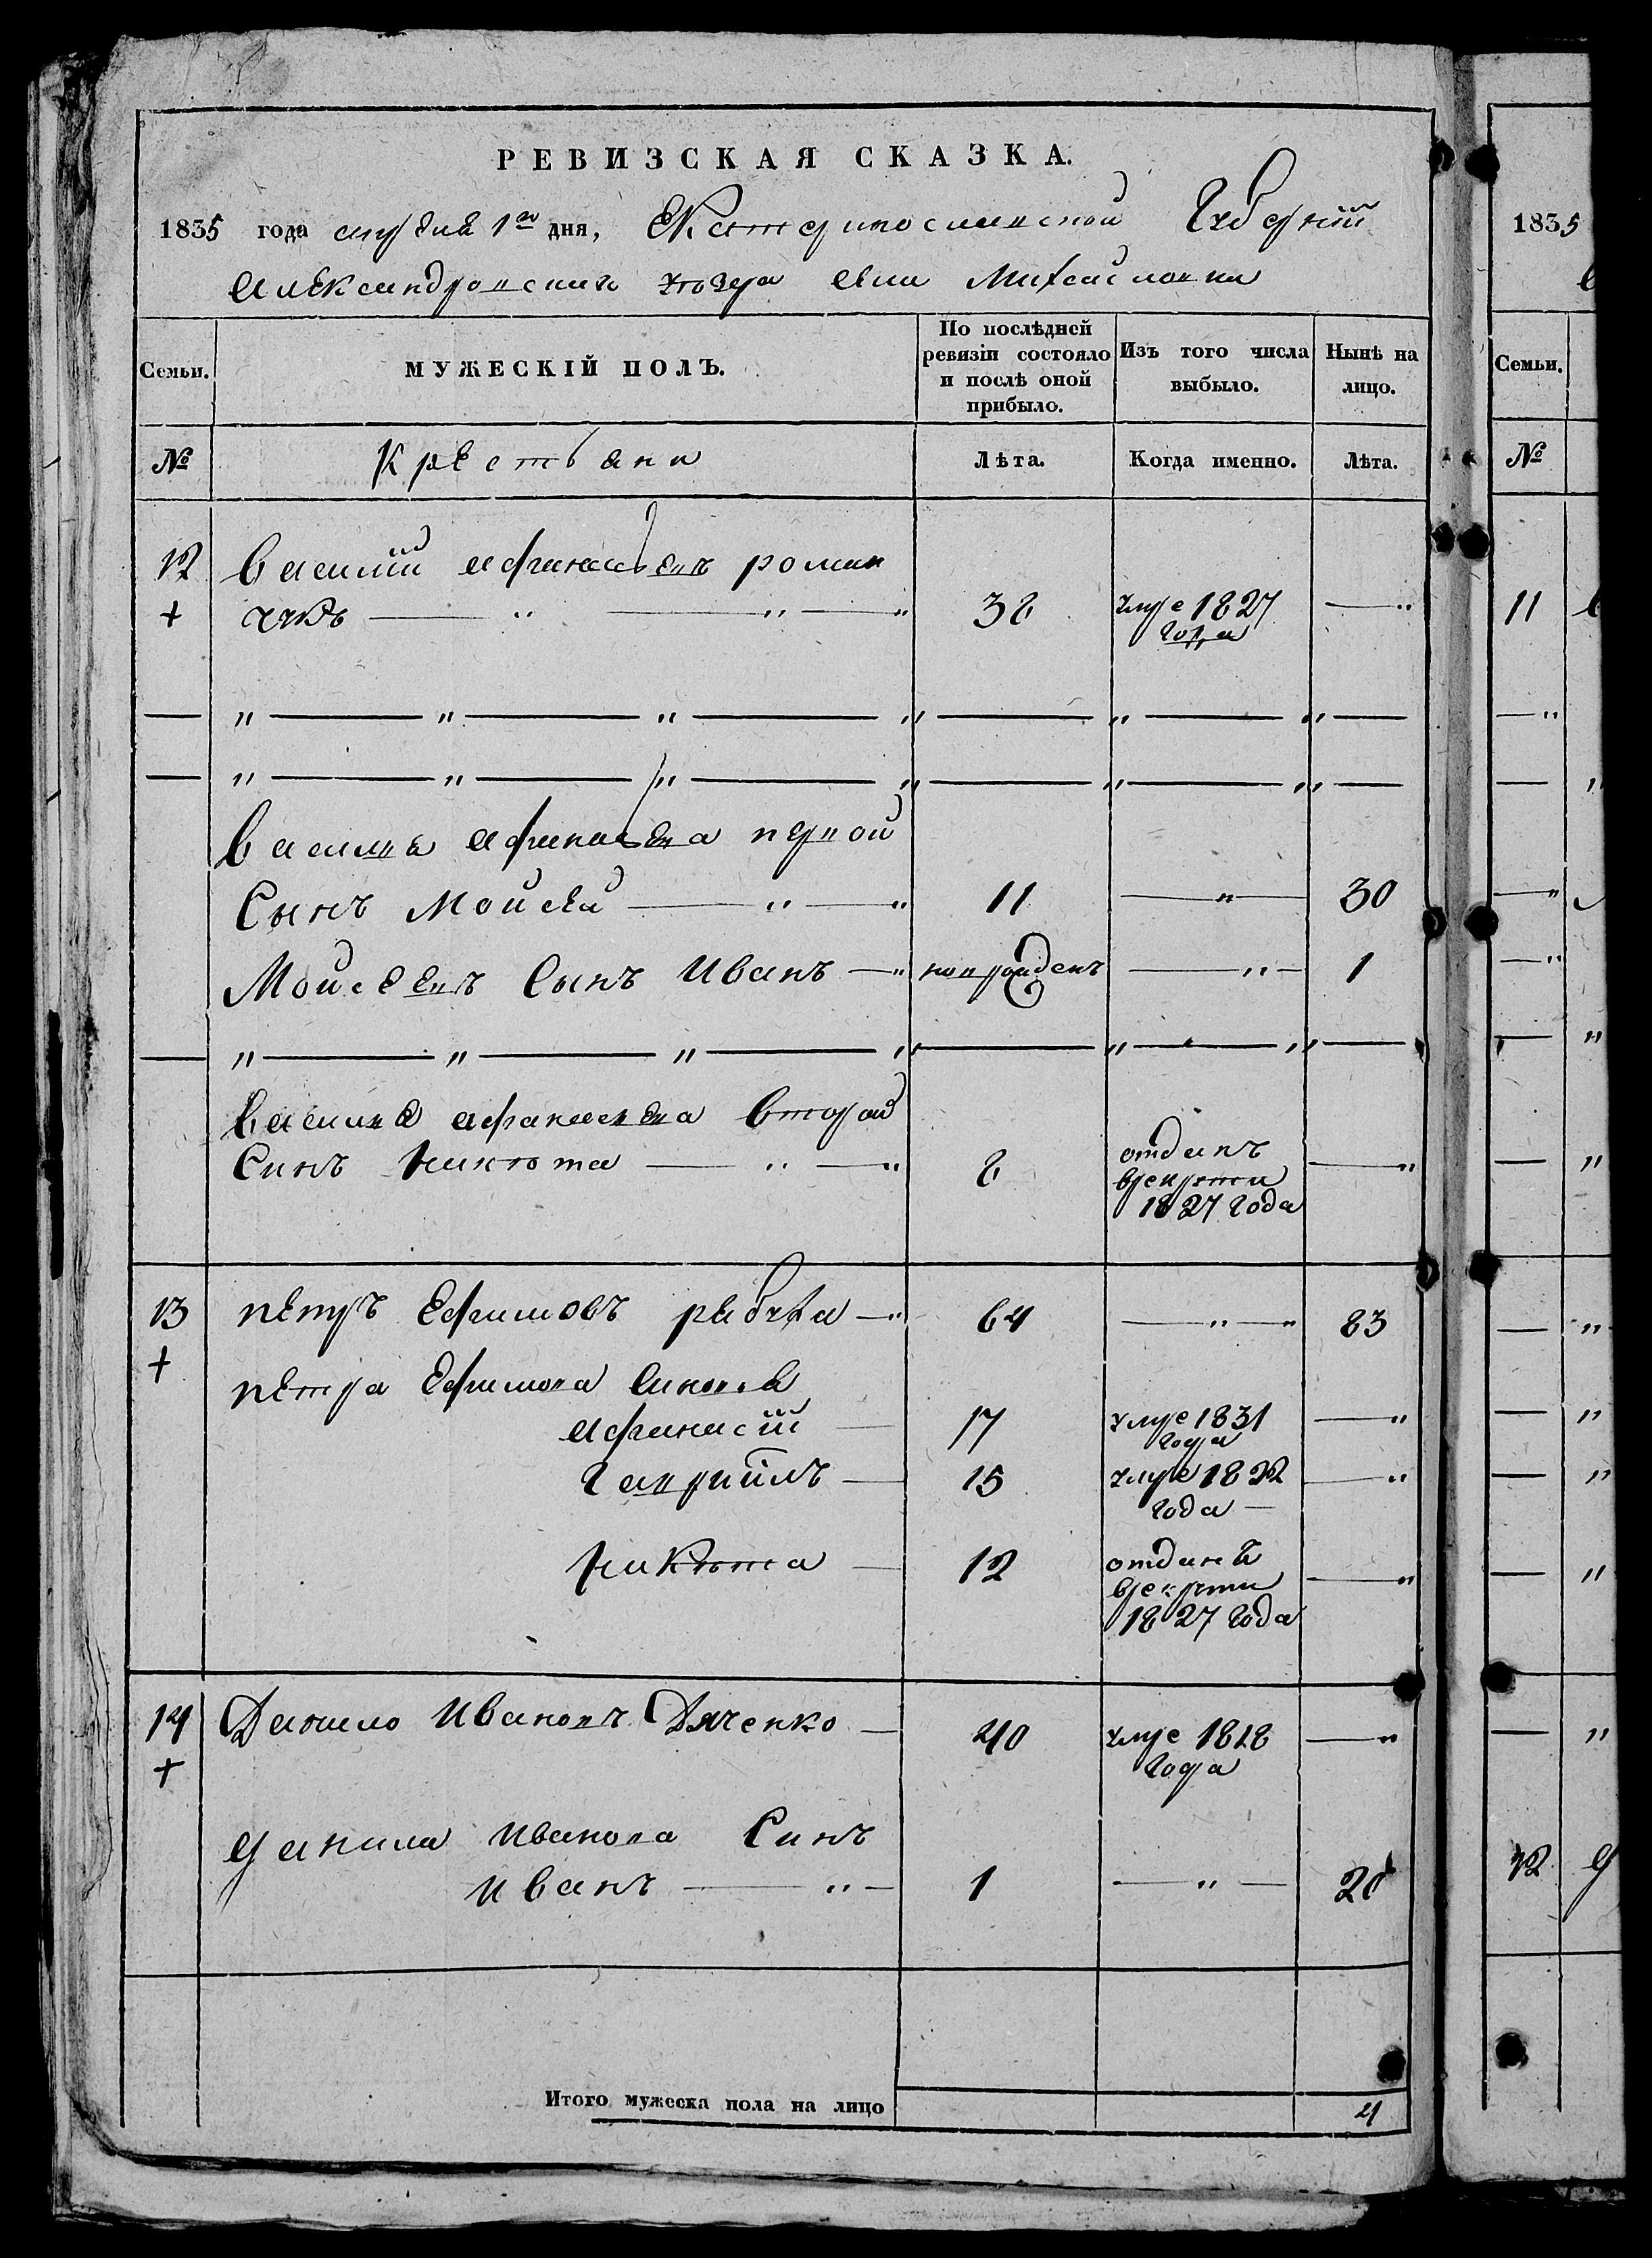 РЕВИЗСКАЯ СКАЗКА.
1835 года 1го дня, Екатеринославской Губернїи
Александровскаго уезда села Михайловки
Семьи.
МУЖЕСКІЙ ПОЛЪ.
По послѣдней ревизіи состояло и послѣ оной прибыло.
Изъ того числа выбыло.
Нынѣ на лицо.
№
Крестьяни
Лѣта.
Когда именно.
Лѣта.
12 Василий афанасьевъ роман
+ чукъ — " — " — " 38 умре 1827 — "
года
— " — " — " — " — " — " —
— " — " — " — " — " — " —
Василия афанасьева первой
Сынъ Мойсей — " — " 11 — " — 30
Мойсеевъ Сынъ Иванъ — " новрожденъ — " — 1
— " — " — " — " — " — " —
василия афанасьева второй
Синъ Никита — " — " 8 отданъ — "
врекрути
1827 года
13 петръ Ефимовъ рябуха — " 64 — " — " 83
+ петра Ефимова синовья
афанасїй — 17 умре 1831 — "
года
гавриїлъ — 15 умре 1822 — "
года —
Никита — 12 отданъ
врекрути — "
1827 года
14 Данило Ивановъ Дяченко — 40 умре 1818 — "
+ года
данила иванова Синъ
иванъ — " — 1 — " — 20
Итого мужеска пола на лицо 4
1835
Семьи.
№
11
— "
— "
— "
— "
— "
— "
— "
— "
— "
— "
— "
12